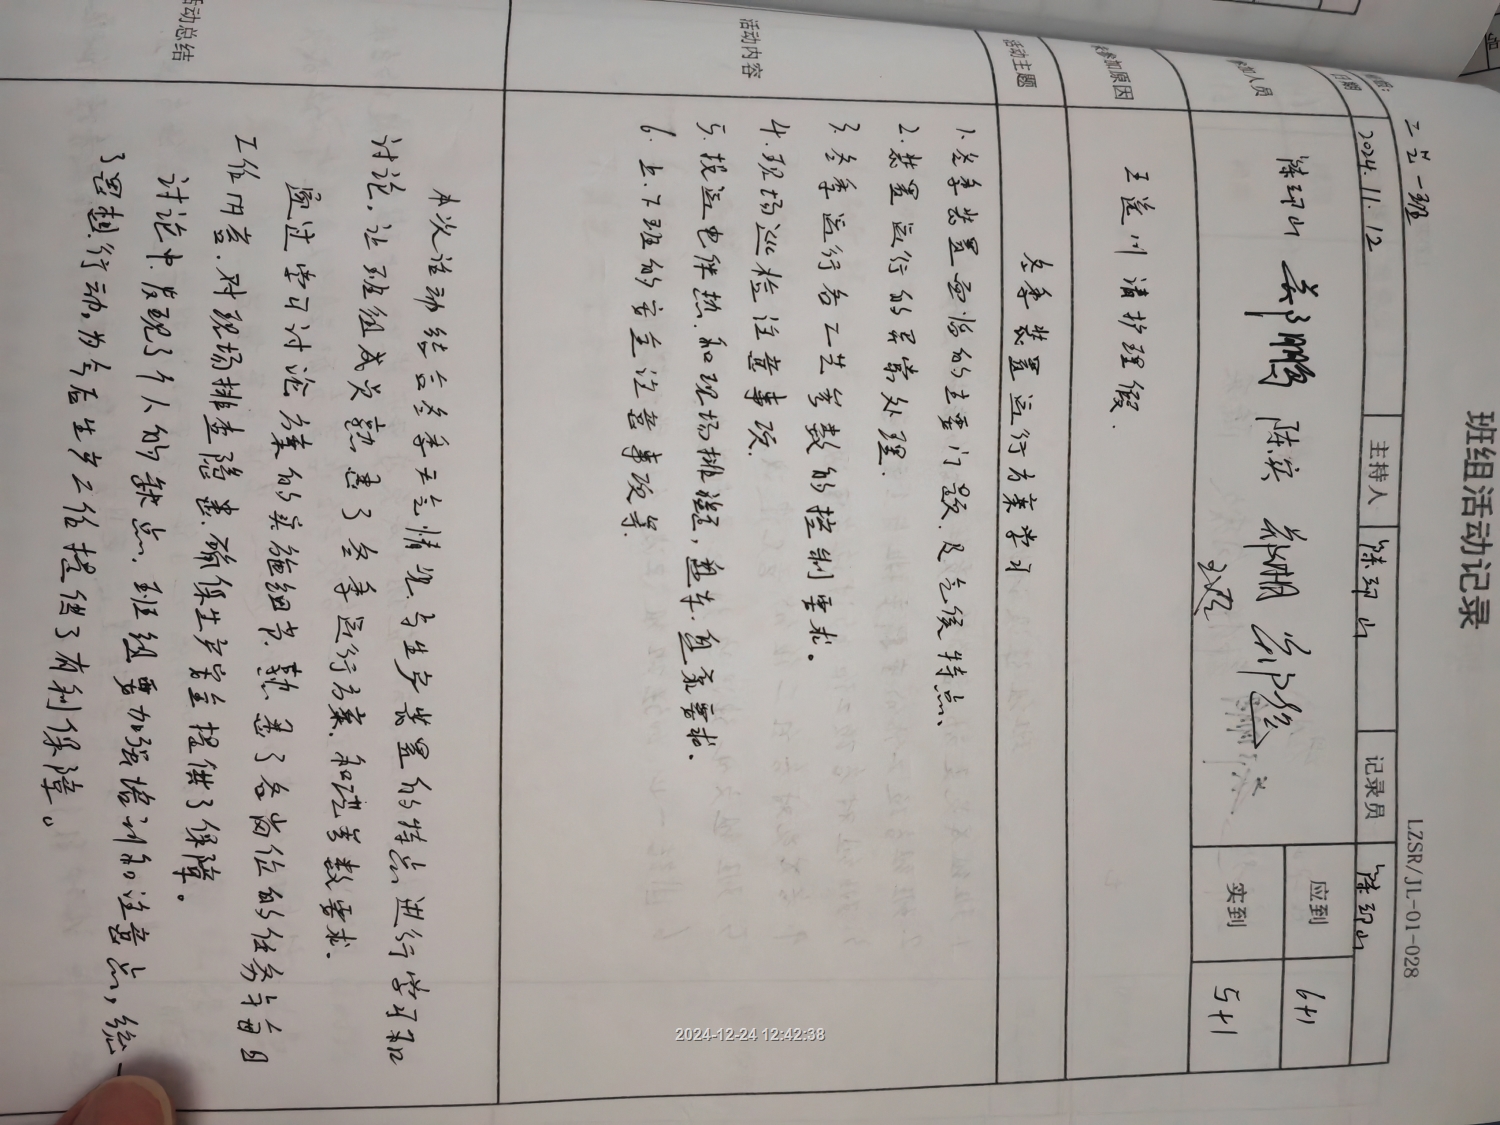 班组活动记录
LZSR/JL-01-028
班组: 二常一班
日期 2024.11.12 主持人 陈印山 记录员 陈印山
参加人员 陈印山 陈实
应到 6+1
实到 5+1
未参加原因 王 川请护理假.
活动主题 冬季装置运行方案学习
活动内容
1.冬季装置面临的主要问题.及气候特点、
2.装置运行的异常处理.
3.冬季运行各工艺参数的控制要求。
4.现场巡检注意事项.
5.投运电伴热.和现场排凝,盘车.甩泵要求.
6.上.下班的安全注意事项等.
活动总结
本次活动结合冬季天气情况.与生产装置的特点进行学习和
讨论,让班组成员熟悉了冬季运行方案.和 参数要求.
通过学习讨论方案的实施细节.熟悉了各岗位的任务与每日
工作内容.对现场排查隐患.确保生产安全提供了保障。
讨论中.发现了个人的缺点.班组要加强培训和注意点,统一
了思想行动,为今后生产工作提供了有利保障。
2024-12-24 12:42:38